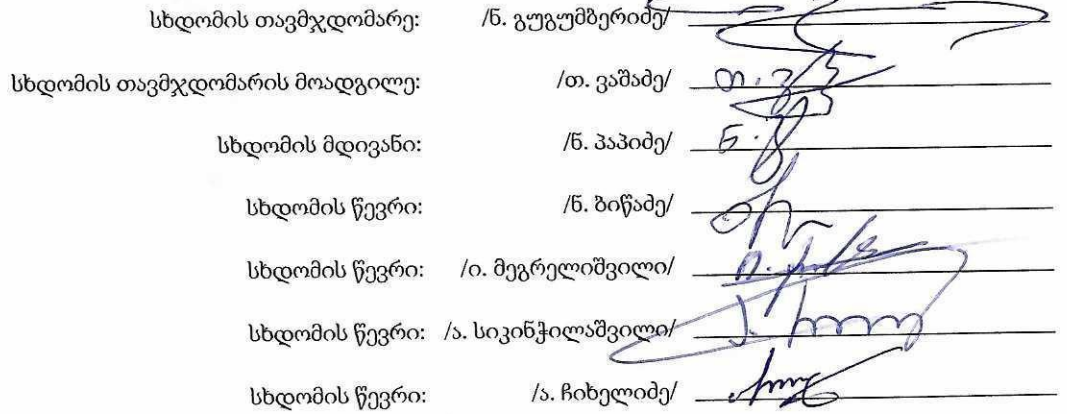 სხდომის თავმჯდომარე: /ნ. გუგუმბერიძე/
სხდომის თავმჯდომარის მოადგილე: /თ. ვაშაძე/
სხდომის მდივანი: /ნ. პაპიძე/
სხდომის წევრი: /ნ. ბიწაძე/
სხდომის წევრი: /ი. მეგრელიშვილი/
სხდომის წევრი: /ა. სიკინჭილაშვილი/
სხდომის წევრი: /ა. ჩიხელიძე/